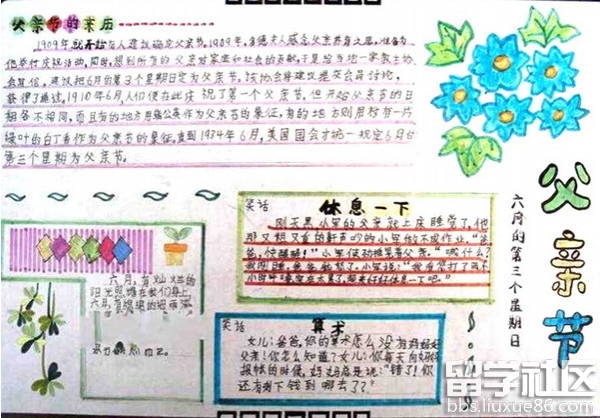 父亲节的来历
1909年就开始有人建议确定父亲节。1909年,多德夫人感念父亲养育之恩,准备为
他举行庆祝活动,同时,想到所有的父亲对家庭和社会的贡献,于是给当地一家教士协
会写信,建议把6月的第3个星期日定为父亲节。该协会将建议提交会员讨论,
获得了通过。1910年6月,人们便在此庆祝了第一个父亲节。但开始父亲节的日
期各不相同,而且有的地方用蒲公英作为父亲节的象征,有的地方则用衬有一片
绿叶的白丁香作为父亲节的象征。直到1934年6月,美国国会才统一规定6月的
第三个星期为父亲节。
父亲节
六月的第三个星期日
笑话
休息一下
刚天黑小军的父亲就上床睡觉了,他
那又粗又重的鼾声吵的小军做不成作业。“爸
爸,快醒醒!”小军使劲摇晃着父亲。
六月,有灿烂的
阳光思维在我们身上,
六月,有绵绵的细雨
笑话
算术
女儿:爸爸,你的算术怎么没有妈妈好
父亲:你怎么知道?女儿:你每天向妈妈
报帐的时候,妈妈总是说:“错了!你
还有剩下钱到哪去了?”
留学社区
bbs.liuxue86.com